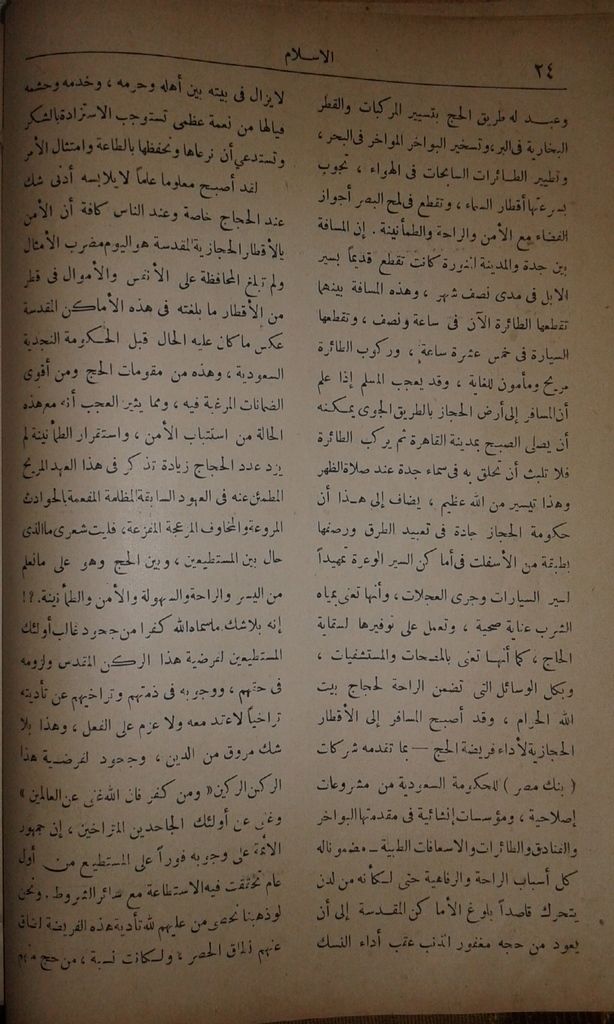 الاسلام
٢٤
وعبد له طريق الحج بتسيير المركبات والقطر
البخارية فى البر، وتسخير البواخر المواخر فى البحر،
وتطيير الطائرات السابحات فى الهواء ، تجوب
بسرعتها أقطار السماء ، وتقطع فى لمح البصر أجواز
الفضاء مع الأمن والراحة والطمأنينة . إن المسافة
بين جدة والمدينة المنورة كانت تقطع قديماً بسير
الابل فى مدى نصف شهر ، وهذه المسافة بينهما
تقطعها الطائرة الآن فى ساعة ونصف ، وتقطعها
السيارة فى خمس عشرة ساعة ، وركوب الطائرة
مريح ومأمون للغاية ، وقد يعجب المسلم إذا علم
أن المسافر إلى أرض الحجاز بالطريق الجوى يمكنه
أن يصلى الصبح بمدينة القاهرة ثم يركب الطائرة
فلا تلبث أن تحلق به فى سماء جدة عند صلاة الظهر
وهذا تيسير من الله عظيم ، يضاف إلى هذا أن
حكومة الحجاز جادة فى تعبيد الطرق ورصفها
بطبقة من الأسفلت فى أماكن السير الوعرة تمهيداً
لسير السيارات وجرى العجلات ، وأنها تعنى بمياه
الشرب عناية صحية ، وتعمل على توفيرها لسقاية
الحاج ، كما أنها تعنى بالمصحات والمستشفيات ،
وبكل الوسائل التى تضمن الراحة لحجاج بيت
الله الحرام ، وقد أصبح المسافر إلى الأقطار
الحجازية لأداء فريضة الحج — بما تقدمه شركات
( بنك مصر ) للحكومة السعودية من مشروعات
إصلاحية ، ومؤسسات إنشائية فى مقدمتها البواخر
والفنادق والطائرات والاسعافات الطبية — مضمونا له
كل أسباب الراحة والرفاهية حتى لكأنه من لدن
يتحرك قاصداً بلوغ الأماكن المقدسة إلى أن
يعود من حجه مغفور الذنب عقب أداء النسك
لايزال فى بيته بين أهله وحرمه ، وخدمه وحشمه
فيالها من نعمة عظمى تستوجب الاستزادة بالشكر
وتستدعى أن نرعاها ونحفظها بالطاعة وامتثال الأمر
لقد أصبح معلوما عاماً لا يلابسه أدنى شك
عند الحجاج خاصة وعند الناس كافة أن الأمن
بالأقطار الحجازية المقدسة هو اليوم مضرب الأمثال
ولم تبلغ المحافظة على الأنفس والأموال فى قطر
من الأقطار ما بلغته فى هذه الأماكن المقدسة
عكس ما كان عليه الحال قبل الحكومة النجدية
السعودية ، وهذه من مقومات الحج ومن أقوى
الضمانات المرغبة فيه ، ومما يثير العجب أنه مع هذه
الحالة من استتباب الأمن ، واستقرار الطمأنينة لم
يزد عدد الحجاج زيادة تذكر فى هذا العهد المريح
المطمئن عنه فى العهود السابقة المظلمة المفعمة بالحوادث
المروعة والمخاوف المزعجة المفزعة، فليت شعرى ما الذى
حال بين المستطيعين ، وبين الحج وهو على ما نعلم
من اليسر والراحة والسهولة والأمن والطمأنينة . ؟!
إنه بلاشك ما سماه الله كفرا من جحود غالب أولئك
المستطيعين لفرضية هذا الركن المقدس ولزومه
فى حقهم ، ووجوبه فى ذمتهم وتراخيهم عن تأديته
تراخياً لا عتد معه ولا عزم على الفعل ، وهذا بلا
شك مروق من الدين ، وجحود لفرضية هذا
الركن الركين « ومن كفر فان الله غنى عن العالمين »
وغنى عن أولئك الجاحدين المتراخين ، إن جمهور
الائمة على وجوبه فوراً على المستطيع من أول
عام تحققت فيه الاستطاعة مع سائر الشروط . ونحن
لو ذهبنا نحصى من عليهم لله تأدية هذه الفريضة لضاق
عنهم نطاق الحصر ، ولكانت نسبة ، من حج منهم